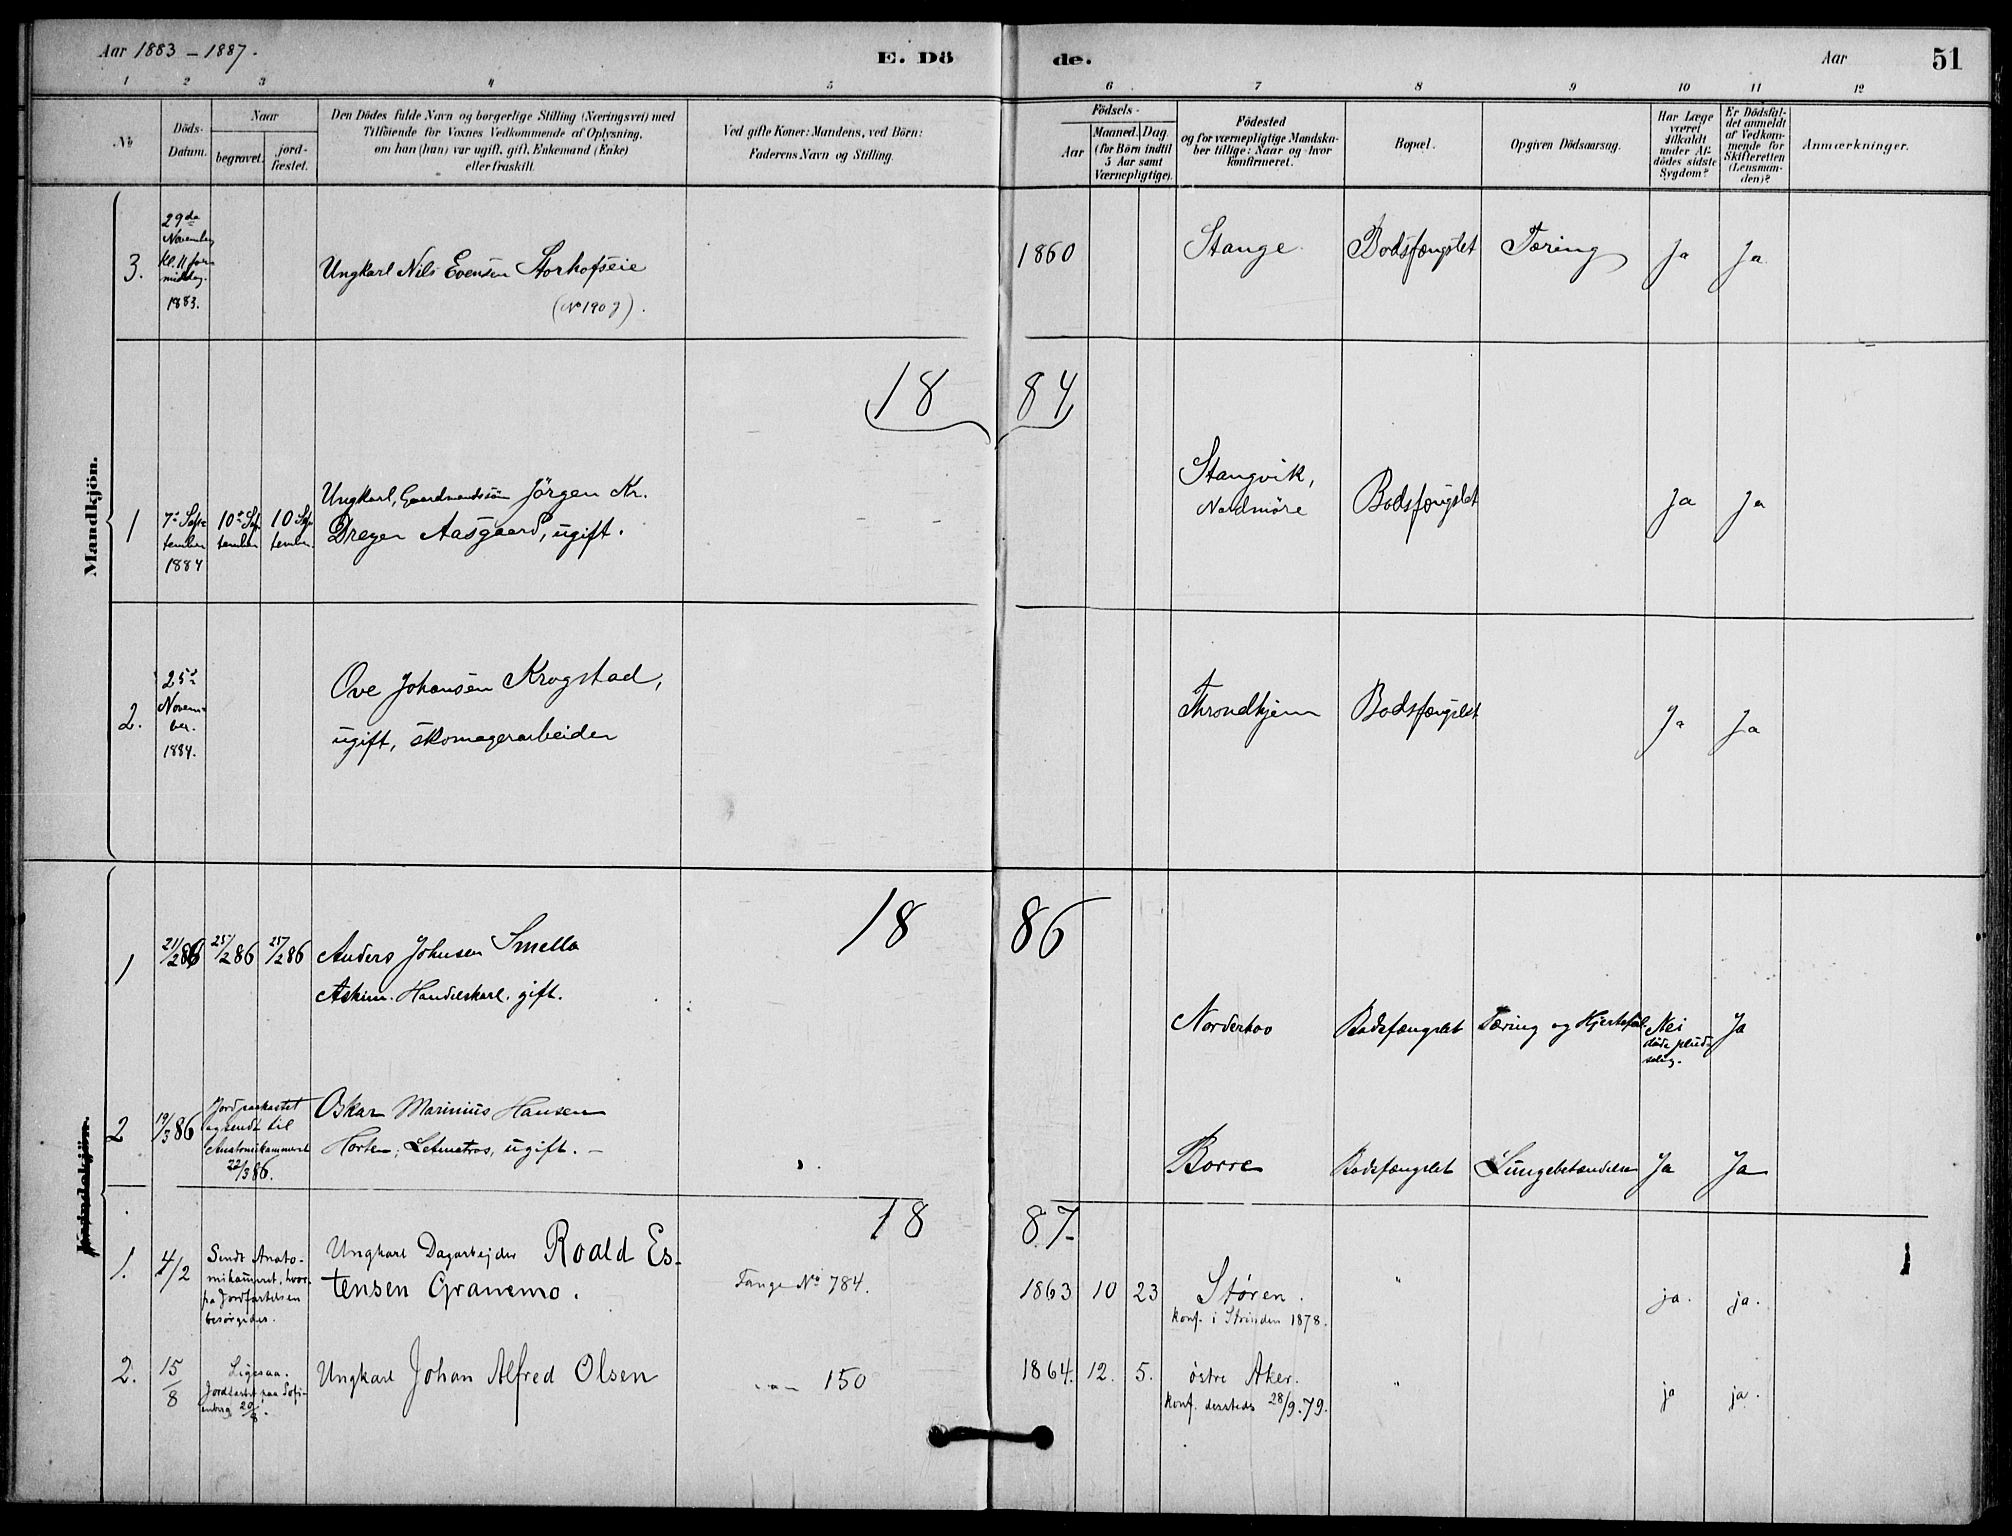 Aar 1883 – 1887.
E. Dö
de.
Aar
51
1 2 3 4 5 6 7 8 9 10 11 12
No
Döds-
Datum.
Naar
begravet.
jord-
fæstet.
Den Dödes fulde Navn og borgerlige Stilling (Næringsvei) med
Tilföiende for Voxnes Vedkommende af Oplysning,
om han (hun) var ugift, gift, Enkemand (Enke)
eller fraskilt.
Ved gifte Koner: Mandens, ved Börn:
Faderens Navn og Stilling.
Födsels-
Aar
Maaned. Dag.
(for Börn indtil
5 Aar samt
Værnepligtige).
Födested
og for værnepligtige Mandska-
ber tillige: Naar og hvor
konfirmeret.
Bopæl.
Opgiven Dödsaarsag.
Har Læge
været
tilkaldt
under Af-
dödes sidste
Sygdom?
Er Dödsfal-
det anmeldt
af Vedkom-
mende for
Skifteretten
(Lensman-
den)?
Anmærkninger.
Mandkjön.
3.
29de
November
Kl. 11 for
middag.
1883.
Ungkarl Nils Evensen Storhofseie
(No 1909).
1860
Stange
Bodsfængslet
Tæring
Ja
Ja
18
84
1
7de Sep-
tember
1884
10de Sep-
tember
10 Sep-
tember.
Ungkarl, Gaardmandssøn Jörgen Kr.
Dreyer Aasgaard, ugift.
Stangvik,
Nordmøre
Bodsfængslet
Ja
Ja
2.
25de
Novem-
ber.
1884.
Ove Johansen Krogstad,
ugift, skomagerarbeider
Throndhjem
Bodsfængslet
Ja
Ja
18
86
1
21/2 86
25/2 86
25/2 86
Anders Johnsen Smella
Askim. Handelskarl. gift.
Norderhov
Bodsfængslet
Tæring og Hjertefeil.
Nei
døde pluds
selig.
Ja
2
19/3 86
Jordpaakastet
og sendt til
Anatomikammeret
22/3 86.
Oskar Marinius Hansen
Horten; Letmatros, ugift. –
Borre
Bodsfængslet
Lungebetændelse
Ja
Ja
Kvindekjön.
18
87.
1.
4/2
Sendt Anato-
mikamret, hvor-
pa Jordfæstelsen
besørgedes.
Ungkarl Dagarbejder Roald Es-
tensen Granemo.
Fange No 784.
1863 10 23
Støren.
Konf. i Strinden 1878.
"
ja.
ja.
2.
15/8
Ligesaa.
Jordfæstet paa Sofi-
enberg 20/8.
Ungkarl Johan Alfred Olsen
– " – 150
1864. 12. 5.
østre Aker.
Konf. dersteds 28/9.79.
"
ja
ja.